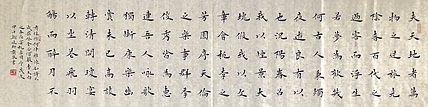 夫天地者萬
物之逆旅光
陰者百代之
過客而浮生
若夢為歡幾
何古人秉燭
夜遊良有以
也況陽春召
我以煙景大
塊假我以文
章會桃李之
芳園序天倫
之樂事群季
俊秀皆為惠
連吾人詠歌
獨慚康樂幽
賞未已高談
轉清開瓊筵
以坐花飛羽
觴而醉月不